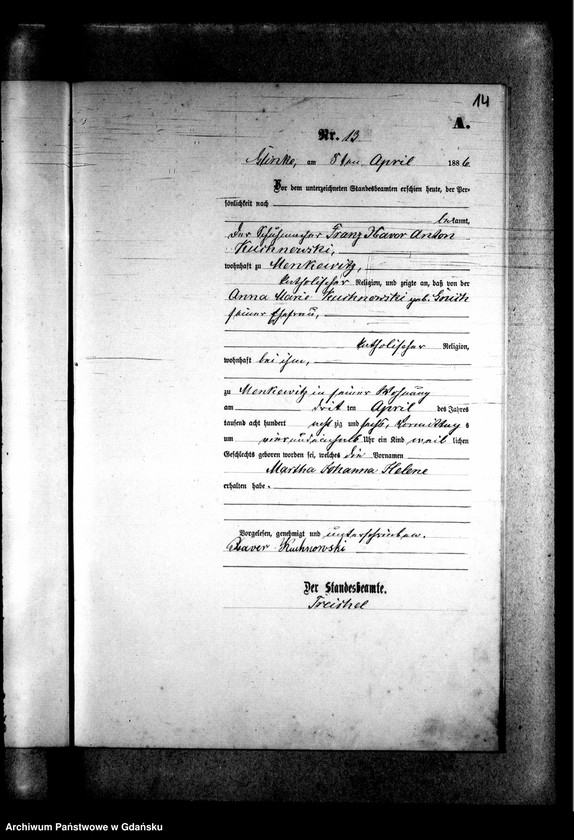 14
A.
Nr. 13
am 8ten April 1886
Vor dem unterzeichneten Standesbeamten erschien heute, der Per-
sönlichkeit nach
bekannt,
der Schuhmacher Franz Xaver Anton
Kuchnowski,
wohnhaft zu Menkewitz,
katholischer Religion, und zeigte an, daß von der
Anna Marie Kuchnowski geb.
seiner Ehefrau,
katholischer Religion,
wohnhaft bei ihm,
zu Menkewitz in seiner Wohnung
am drit ten April des Jahres
tausend acht hundert acht zig und sechs, Vormittag s
um vierundeinhalb Uhr ein Kind weib lichen
Geschlechts geboren worden sei, welches die Vornamen
Martha Johanna Helene
erhalten habe.
Vorgelesen, genehmigt und unterschrieben.
Xaver Kuchnowski
Der Standesbeamte.
Archiwum Państwowe w Gdańsku